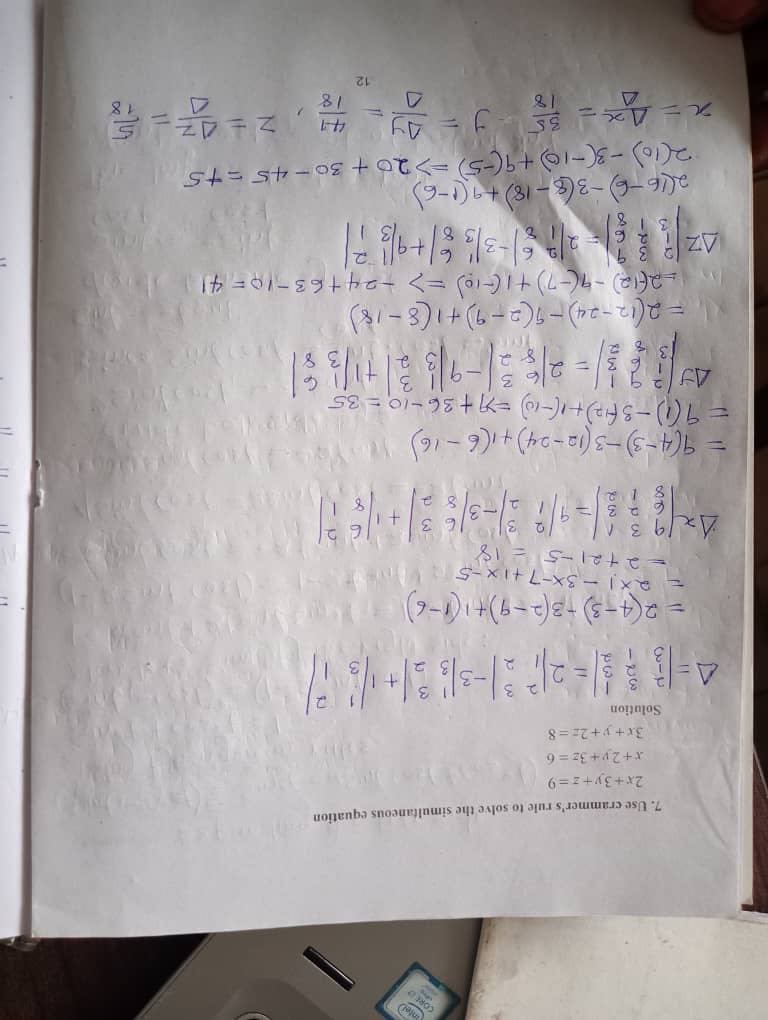 intel
CORE i7
7. Use crammer's rule to solve the simultaneous equation
2x+3y+z=9
x+2y+3z=6
3x+y+2z=8
Solution
Δ = |2 3 1; 1 2 3; 3 1 2| = 2|2 3; 1 2| -3|1 3; 3 2| + 1|1 2; 3 1|
= 2(4-3) -3(2-9)+1(1-6)
= 2×1 - 3×-7 +1×-5
= 2+21-5 = 18
Δx |9 3 1; 6 2 3; 8 1 2| = 9|2 3; 1 2| -3|6 3; 8 2| +1|6 2; 8 1|
= 9(4-3)-3(12-24)+1(6-16)
= 9(1)-3(-12)+1(-10) => 9+36-10 = 35
Δy |2 9 1; 1 6 3; 3 8 2| = 2|6 3; 8 2| -9|1 3; 3 2| +1|1 6; 3 8|
= 2(12-24)-9(2-9)+1(8-18)
= 2(-12) -9(-7) +1(-10) => -24+63-10 = 41
Δz |2 3 9; 1 2 6; 3 1 8| = 2|2 6; 1 8| -3|1 6; 3 8| +9|1 2; 3 1|
2(16-6)-3(8-18)+9(1-6)
2(10) -3(-10)+9(-5) => 20+30-45 = +5
x = Δx/Δ = 35/18 y = Δy/Δ = 41/18, z = Δz/Δ = 5/18
12